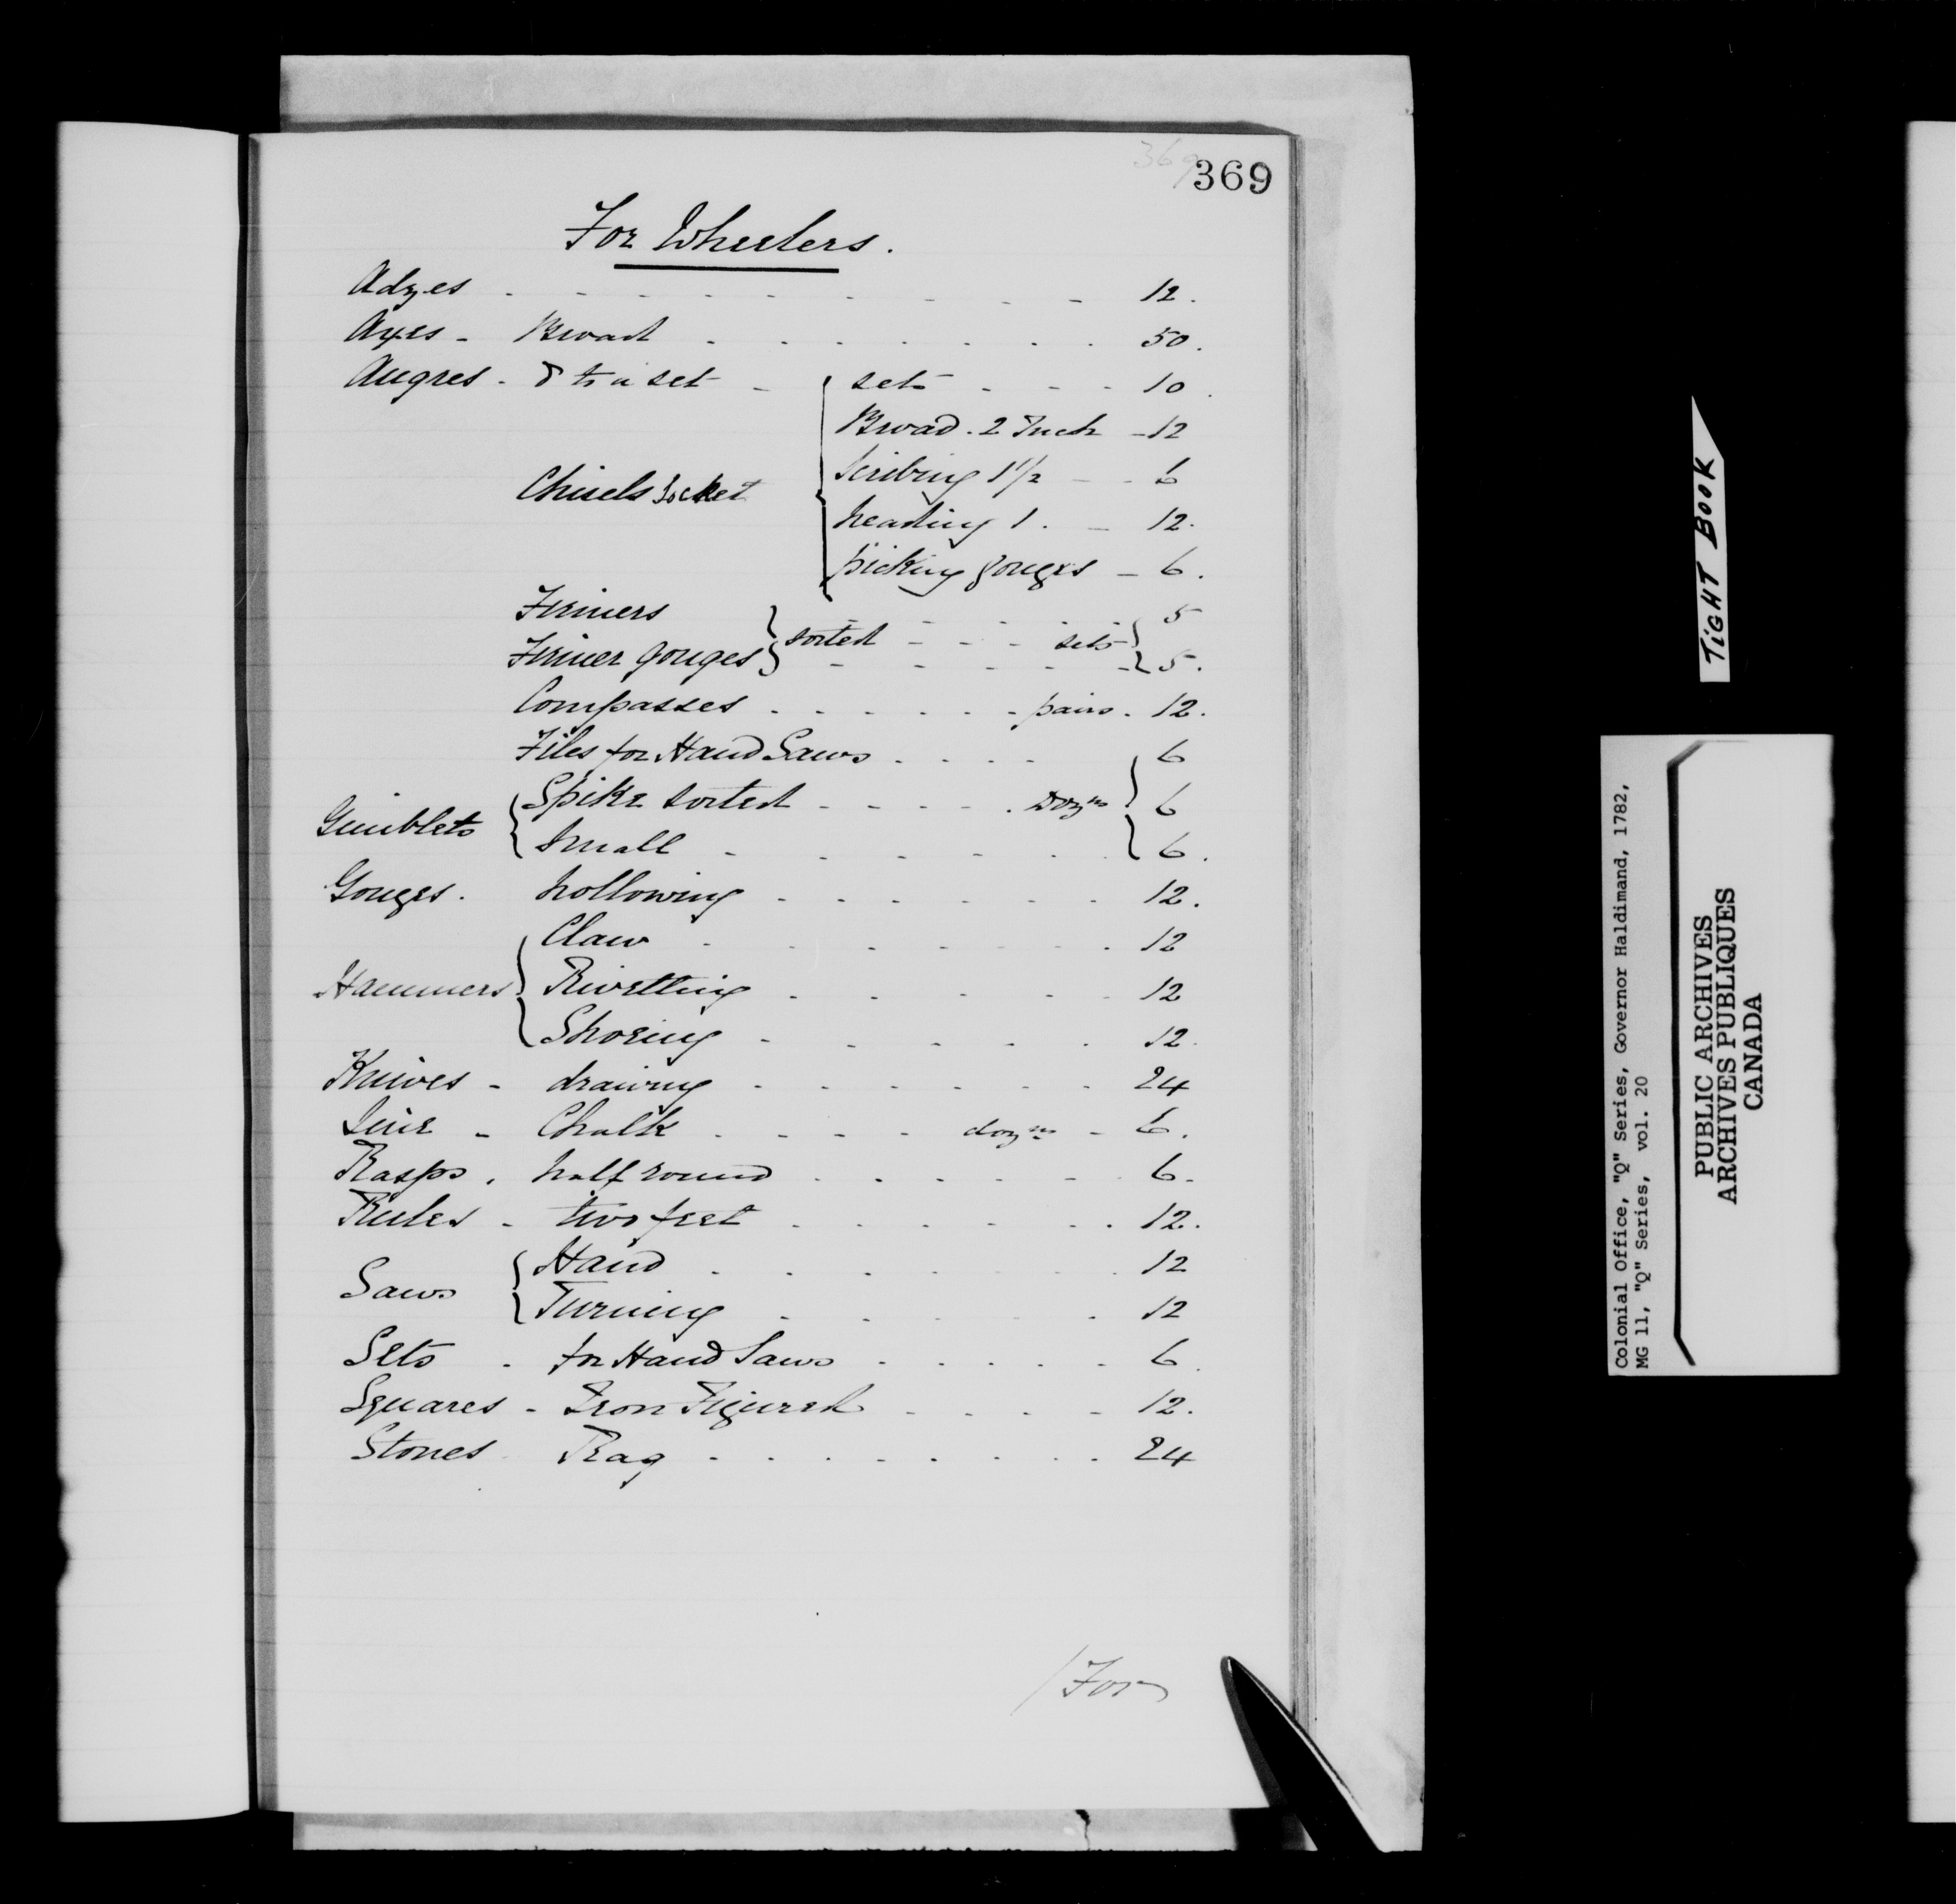 369
369
For Wheelers.
Adzes - - - - - - - - - 12.
Axes - Broad . . . . . . . 50.
Augres - 8 to a set - { sets - - - 10.
Broad . 2 Inch - 12
Chisels Socket { scribing 1 1/2 - - 6
heading 1 . - 12.
picking gouges - 6.
Firmers } sorted - - - sets { 5
Firmer gouges } - - - - - - { 5.
Compasses . . . . . . pairs . 12.
Files for Hand Saws . . . . 6
Gimblets { Spike sorted - - - - . Dozns { 6
{ Small - . . . . . { 6.
Gouges . hollowing . . . . . . . 12.
Hammers { Claw . . . . . . . 12
{ Rivetting . . . . . . 12
{ Shoeing . . . . . . 12.
Knives - drawing . . . . . . . 24
Line - Chalk . . . . dozns - 6.
Rasps . half round . . . . . . 6.
Rules - two feet . . . . . . 12.
Saws { Hand . . . . . . . 12
{ Turning . . . . . . 12
Sets - for Hand Saws . . . . . 6.
Squares - Iron Figured . . . . 12.
Stones . Rag . . . . . . . 24
/For
TIGHT BOOK
Colonial Office, "Q" Series, Governor Haldimand, 1782,
MG 11, "Q" Series, vol. 20
PUBLIC ARCHIVES
ARCHIVES PUBLIQUES
CANADA